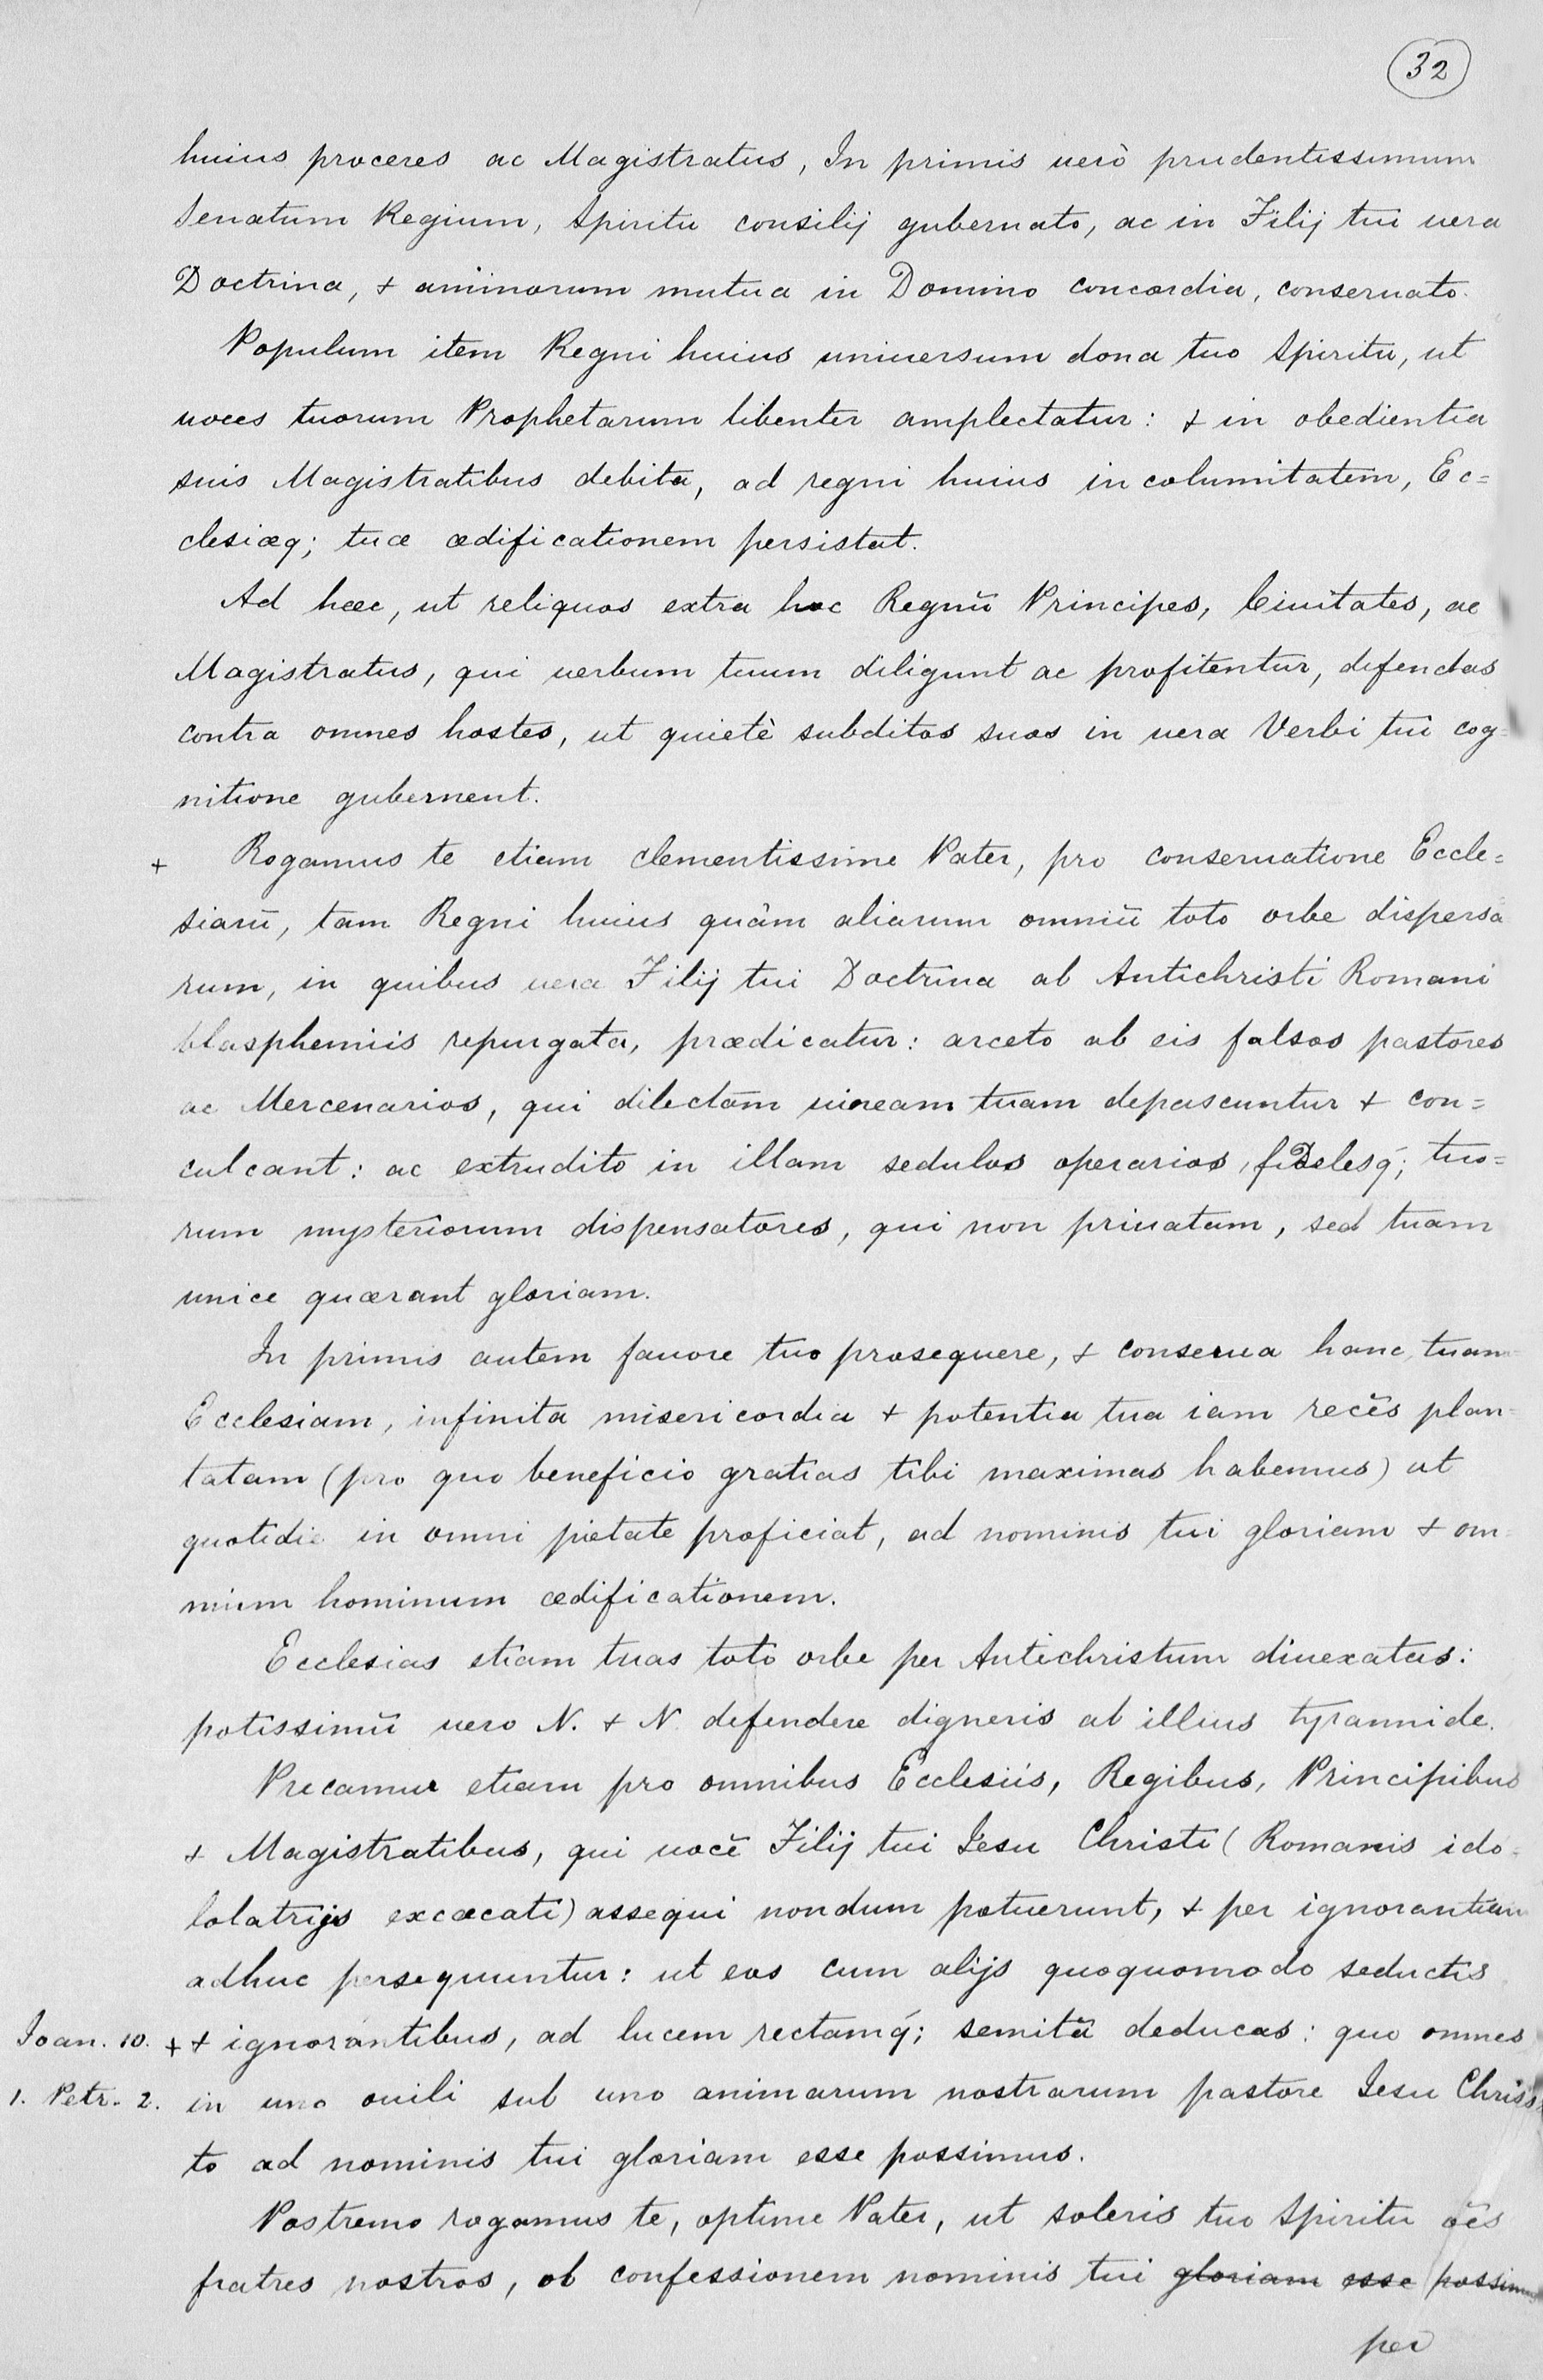 32
huius proceres ac Magistratus, In primis uerò prudentissimum
Senatum Regium, Spiritu consilij gubernato, ac in Filij tui uera
Doctrina, & animorum mutua in Domino concordia, conseruato.
Populum item Regni huius uniuersum dona tuo Spiritu, ut
uoces tuorum Prophetarum libenter amplectatur: & in obedientia
suis Magistratibus debita, ad regni huius incolumitatem, Ec=
clesiæq; tuæ ædificationem persistat.
Ad hæc, ut reliquos extra hoc Regnū Principes, Ciuitates, ac
Magistratus, qui uerbum tuum diligunt ac profitentur, defendas
contra omnes hostes, ut quietè subditos suos in uera Verbi tui cog=
nitione gubernent.
+ Rogamus te etiam clementissime Pater, pro conseruatione Eccle=
siarū, tam Regni huius quàm aliarum omniū toto orbe dispersa
rum, in quibus uera Filij tui Doctrina ab Antichristi Romani
blasphemiis repurgata, prædicatur: arceto ab eis falsos pastores
ac Mercenarios, qui dilectam uineam tuam depascuntur & con=
culcant: ac extrudito in illam sedulos operarios, fidelesq́; tuo=
rum mysteriorum dispensatores, qui non priuatam, sed tuam
unice quærant gloriam.
In primis autem fauore tuo prosequere, & conserua hanc tuam
Ecclesiam, infinita misericordia & potentia tua iam recēs plan=
tatam (pro quo beneficio gratias tibi maximas habemus) ut
quotidie in omni pietate proficiat, ad nominis tui gloriam & om=
nium hominum ædificationem.
Ecclesias etiam tuas toto orbe per Antichristum diuexatas:
potissimū uero N. & N. defendere digneris ab illius tyrannide.
Precamur etiam pro omnibus Ecclesiis, Regibus, Principibus
& Magistratibus, qui uocē Filij tui Iesu Christi (Romanis ido=
lolatrijs excæcati) assequi nondum potuerunt, & per ignorantiam
adhuc persequuntur: ut eos cum alijs quoquomodo seductis
Ioan. 10. + & ignorantibus, ad lucem rectamq́; semitā deducas: quo omnes
1. Petr. 2. in uno ouili sub uno animarum nostrarum pastore Iesu Chris=
to ad nominis tui gloriam esse possimus.
Postremo rogamus te, optime Pater, ut soleris tuo Spiritu oēs
fratres nostros, ob confessionem nominis tui gloriam esse possimus
per